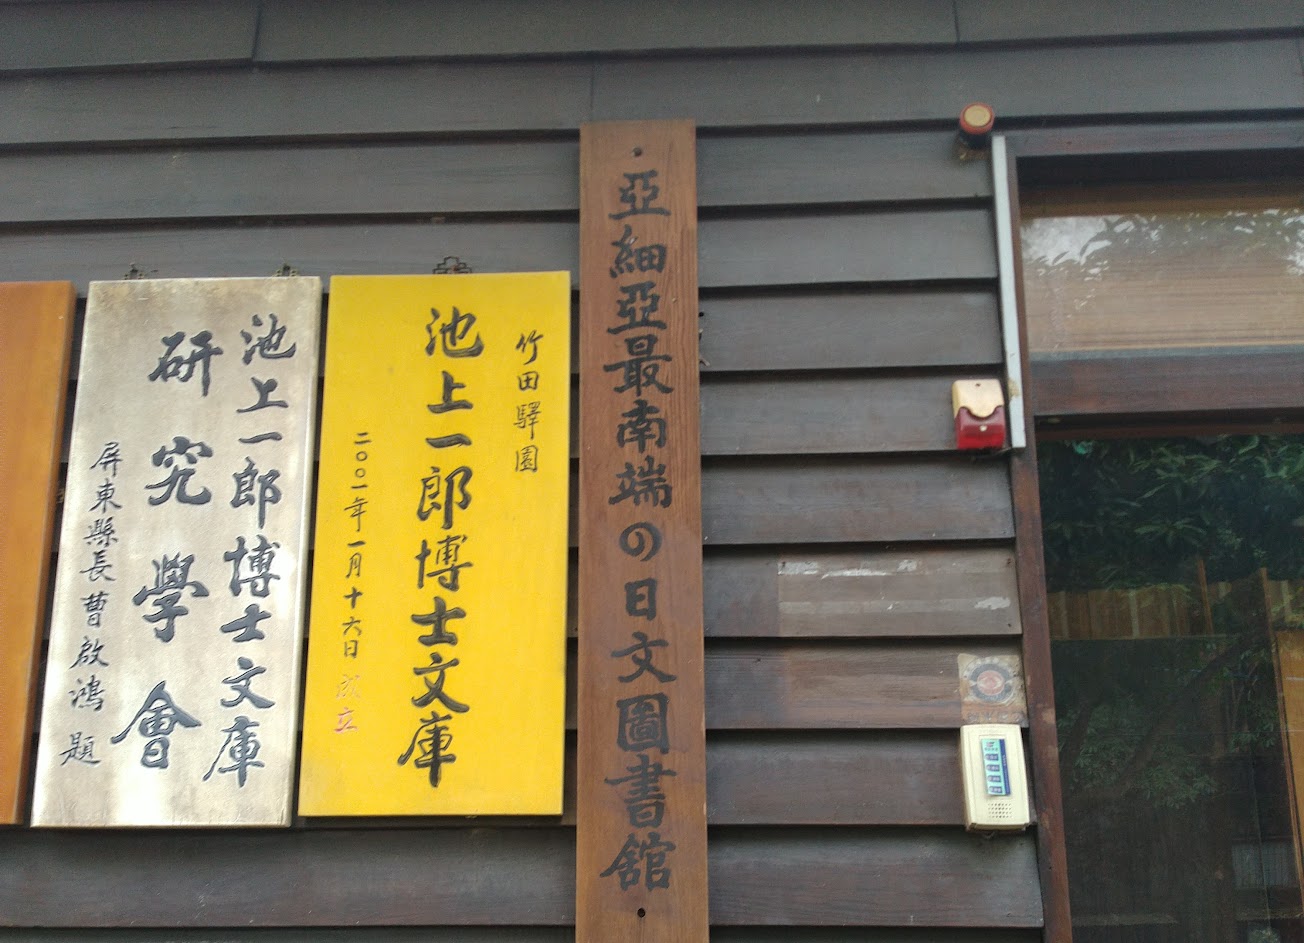 亞細亞最南端の日文圖書舘
竹田驛園
池上一郎博士文庫
二〇〇一年一月十六日成立
池上一郎博士文庫
研究學會
屏東縣長曹啟鴻題